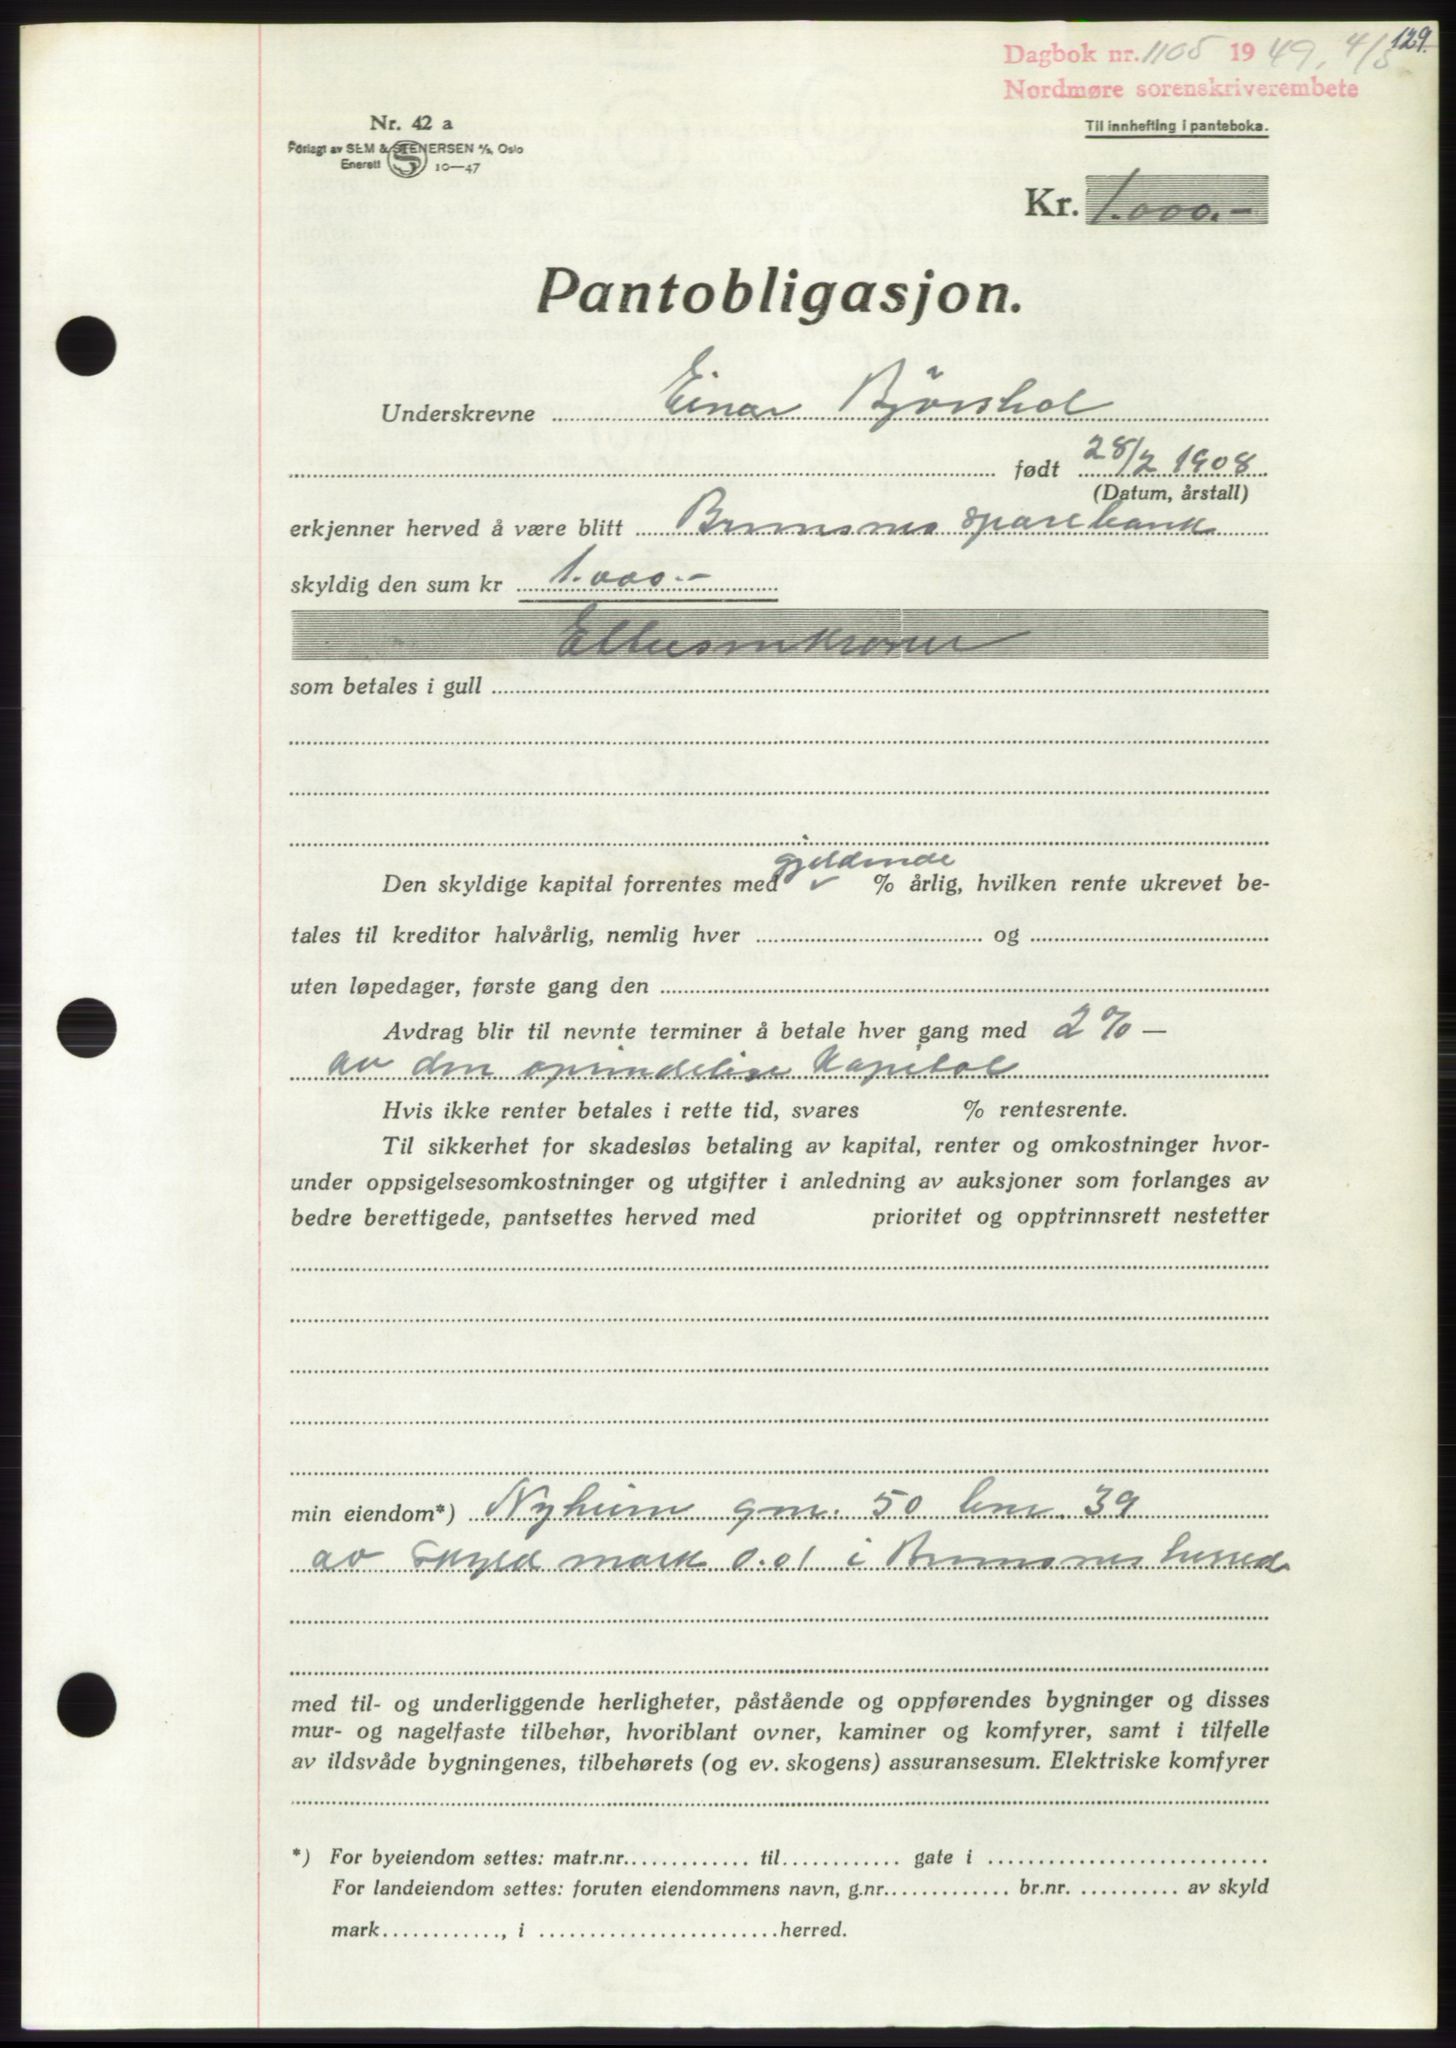 129.
Dagbok nr. 1105 1949, 4/3
Nordmøre sorenskriverembete
Nr. 42 a
Til innhefting i panteboka.
Forlagt av SEM & STENERSEN A/S, Oslo
Enerett S 10—47
Kr. 1.000.-
Pantobligasjon.
Underskrevne Einar Bjørshol
født 28/2 1908
(Datum, årstall)
erkjenner herved å være blitt Brunsnes sparebank
skyldig den sum kr 1.000.-
Ettusenkroner
som betales i gull
Den skyldige kapital forrentes med gjeldende % årlig, hvilken rente ukrevet be-
tales til kreditor halvårlig, nemlig hver og
uten løpedager, første gang den
Avdrag blir til nevnte terminer å betale hver gang med 2% —
av den oprindelige kapital
Hvis ikke renter betales i rette tid, svares % rentesrente.
Til sikkerhet for skadesløs betaling av kapital, renter og omkostninger hvor-
under oppsigelsesomkostninger og utgifter i anledning av auksjoner som forlanges av
bedre berettigede, pantsettes herved med prioritet og opptrinnsrett nestetter
min eiendom*) Nyheim gnr. 50 bnr. 39
av skyld mark 0.01 i Brunsnes herred
med til- og underliggende herligheter, påstående og oppførendes bygninger og disses
mur- og nagelfaste tilbehør, hvoriblant ovner, kaminer og komfyrer, samt i tilfelle
av ildsvåde bygningenes, tilbehørets (og ev. skogens) assuransesum. Elektriske komfyrer
*) For byeiendom settes: matr.nr. til gate i
For landeiendom settes: foruten eiendommens navn, g.nr. br.nr. av skyld
mark , i herred.